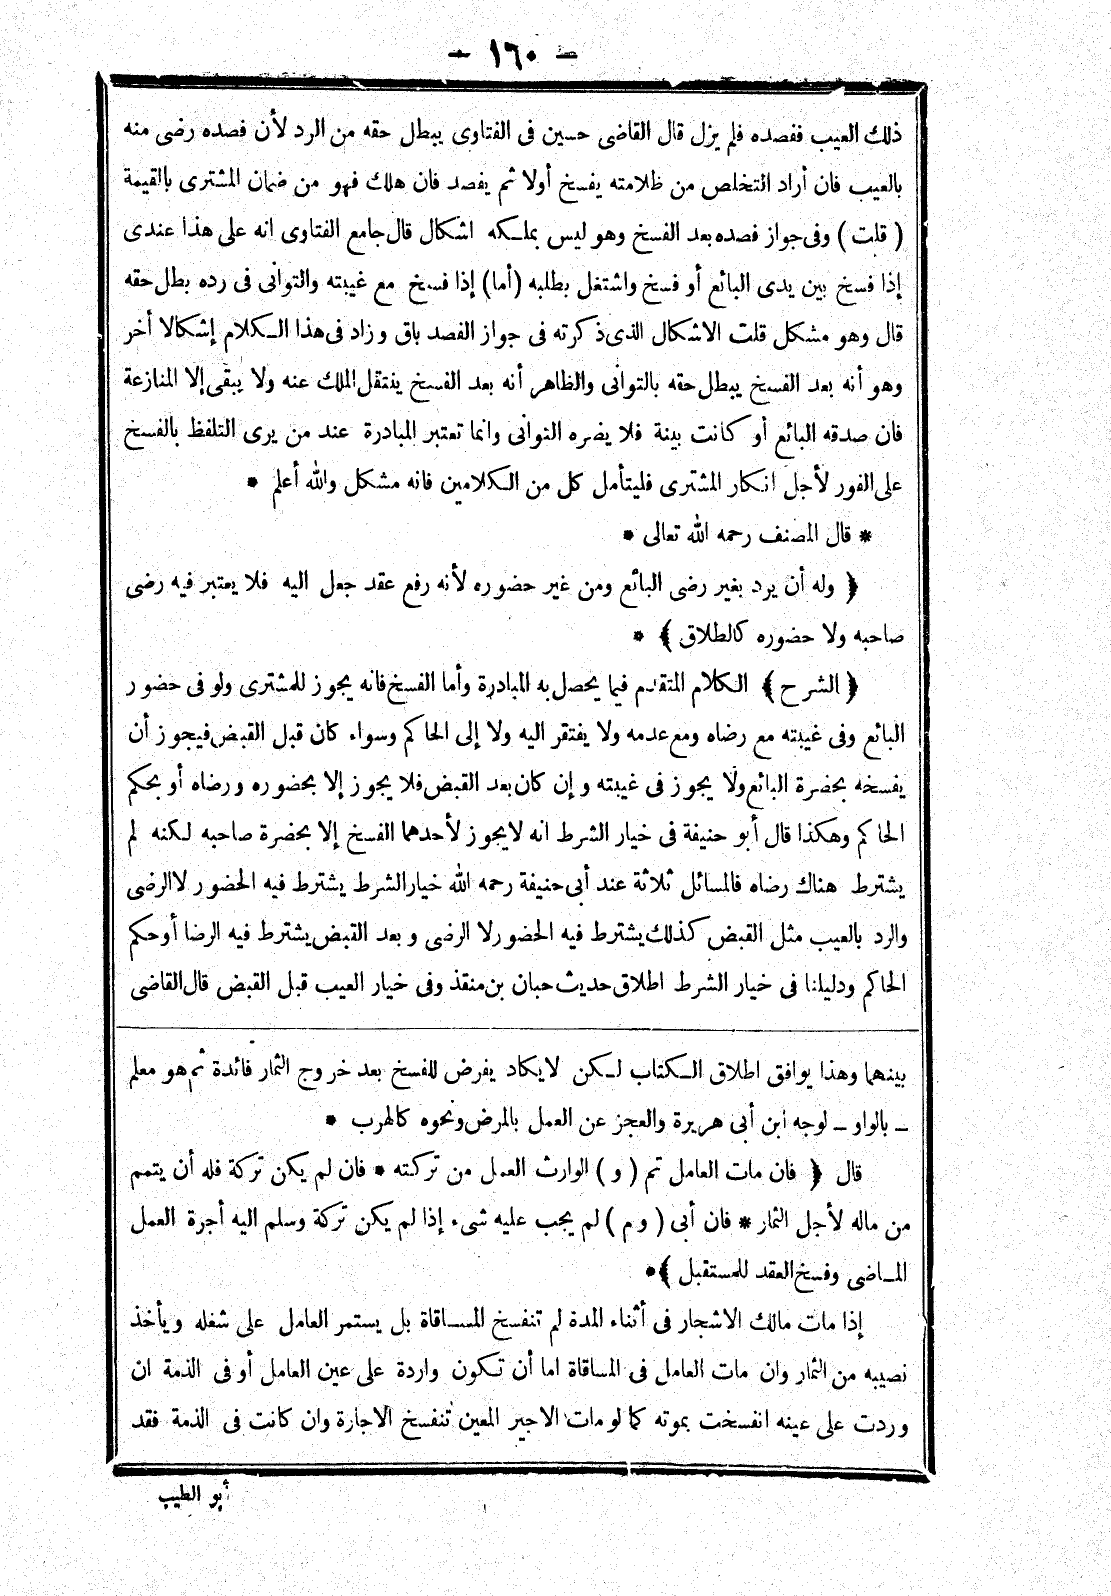 - ١٦٠ -
ذلك العيب ففصده فلم يزل قال القاضى حسين فى الفتاوى يبطل حقه من الرد لأن فصده رضى منه
بالعيب فان أراد التخلص من ظلامته يفسخ أولا ثم يفصد فان هلك فهو من ضمان المشترى بالقيمة
( قلت ) وفى جواز فصده بعد الفسخ وهو ليس بملكه اشكال قال جامع الفتاوى انه على هذا عندى
إذا فسخ بين يدى البائع أو فسخ واشتغل بطلبه (أما) إذا فسخ مع غيبته والتوانى فى رده بطل حقه
قال وهو مشكل قلت الاشكال الذى ذكرته فى جواز الفصد باق وزاد فى هذا الكلام إشكالا أخر
وهو أنه بعد الفسخ يبطل حقه بالتوانى والظاهر أنه بعد الفسخ ينتقل الملك عنه ولا يبقى إلا المنازعة
فان صدقه البائع أو كانت بينة فلا يضره التوانى وانما تعتبر المبادرة عند من يرى التلفظ بالفسخ
على الفور لأجل انكار المشترى فليتأمل كل من الكلامين فانه مشكل والله أعلم *
* قال المصنف رحمه الله تعالى *
﴿ وله أن يرد بغير رضى البائع ومن غير حضوره لأنه رفع عقد جعل اليه فلا يعتبر فيه رضى
صاحبه ولا حضوره كالطلاق ﴾ *
﴿ الشرح ﴾ الكلام المتقدم فيما يحصل به المبادرة وأما الفسخ فانه يجوز للمشترى ولو فى حضور
البائع وفى غيبته مع رضاه ومع عدمه ولا يفتقر اليه ولا إلى الحاكم وسواء كان قبل القبض فيجوز أن
يفسخه بحضرة البائع ولا يجوز فى غيبته وإن كان بعد القبض فلا يجوز إلا بحضوره ورضاه أو بحكم
الحاكم وهكذا قال أبو حنيفة فى خيار الشرط انه لا يجوز لأحدهما الفسخ إلا بحضرة صاحبه لكنه لم
يشترط هناك رضاه فالمسائل ثلاثة عند أبى حنيفة رحمه الله خيار الشرط يشترط فيه الحضور لا الرضى
والرد بالعيب مثل القبض كذلك يشترط فيه الحضور لا الرضى وبعد القبض يشترط فيه الرضا أو حكم
الحاكم ودليلنا فى خيار الشرط اطلاق حديث حبان بن منقذ وفى خيار العيب قبل القبض قال القاضى
بينهما وهذا يوافق اطلاق الكتاب لكن لا يكاد يفرض للفسخ بعد خروج الثمار فائدة ثم هو معلم
ـ بالواو ـ لوجه ابن أبى هريرة والعجز عن العمل بالمرض ونحوه كالهرب *
قال ﴿ فان مات العامل تم ( و ) الوارث العمل من تركته * فان لم يكن تركة فله أن يتمم
من ماله لأجل الثمار * فان أبى ( وم ) لم يجب عليه شىء إذا لم يكن تركة وسلم اليه أجرة العمل
الماضى وفسخ العقد للمستقبل ﴾ *
إذا مات مالك الاشجار فى أثناء المدة لم تنفسخ المساقاة بل يستمر العامل على شغله ويأخذ
نصيبه من الثمار وان مات العامل فى المساقاة اما أن تكون واردة على عين العامل أو فى الذمة ان
وردت على عينه انفسخت بموته كما لو مات الاجير المعين تنفسخ الاجارة وان كانت فى الذمة فقد
أبو الطيب